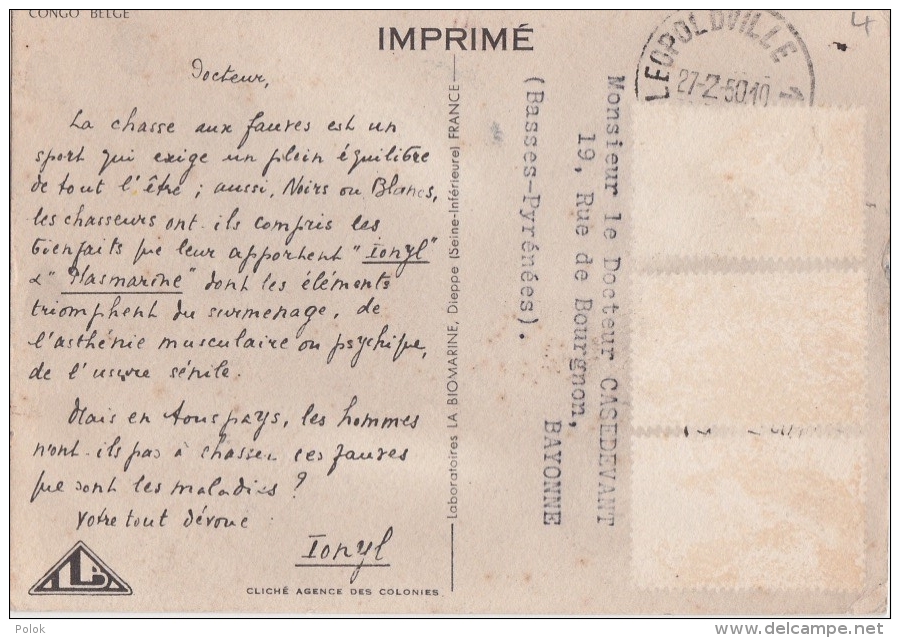 CONGO BELGE
IMPRIMÉ
Docteur,
La chasse aux fauves est un
sport qui exige un plein équilibre
de tout l'être ; aussi, Noirs ou Blancs,
les chasseurs ont-ils compris les
bienfaits que leur apportent "Ionyl"
& "Plasmarine" dont les éléments
triomphent du surmenage, de
l'asthénie musculaire ou psychique,
de l'usure sénile.
Mais en tous pays, les hommes
n'ont-ils pas à chasser ces fauves
que sont les maladies ?
Votre tout dévoué
Ionyl
CLICHÉ AGENCE DES COLONIES
Laboratoires LA BIOMARINE, Dieppe (Seine-Inférieure) FRANCE
LEOPOLDVILLE 1
27-2-50.10
4
Monsieur le Docteur CASEDEVANT
19, Rue de Bourgnon,
BAYONNE
(Basses-Pyrénées).
Polok
www.delcampe.net